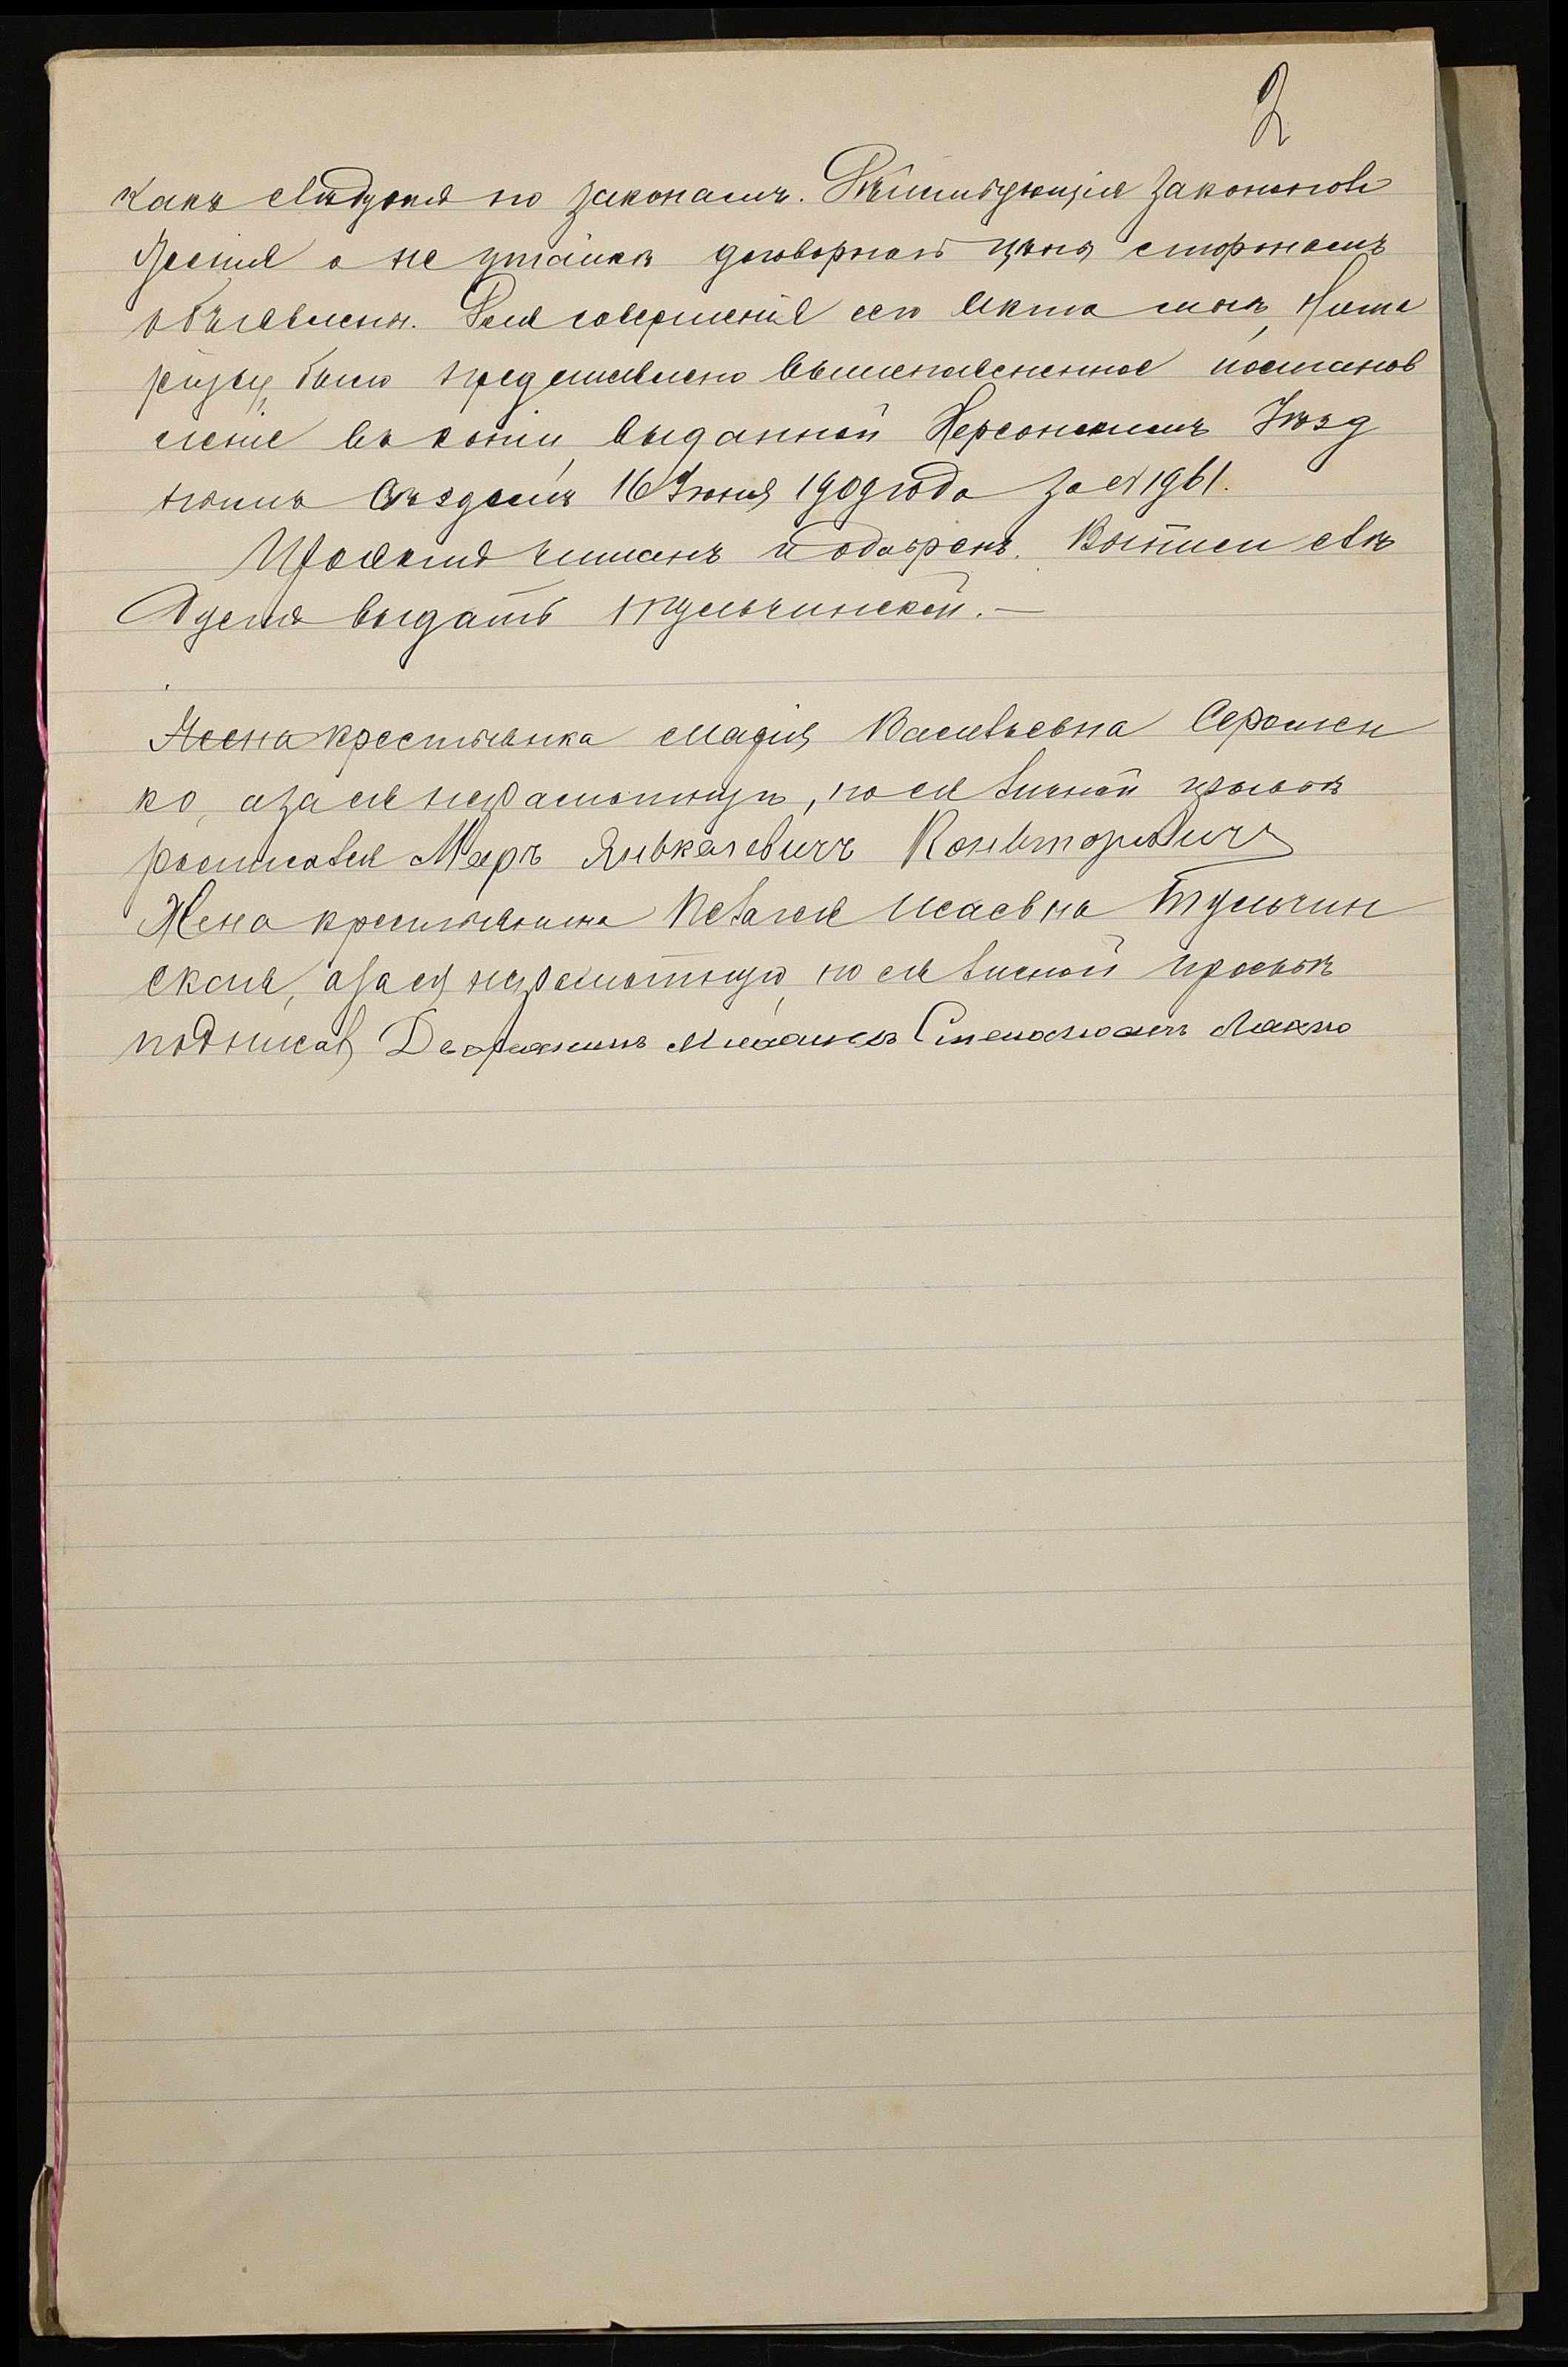 2
какъ следуетъ по законамъ. Действующія законопо
ія о не утайкѣ договорной цѣны сторонамъ
объявлены. Для совершенія сего акта мнѣ, Нота
ріусу, было представлено вышепоясненное постанов
леніе въ копіи, выданной Херсонскимъ Уѣзд
нымъ Съѣздомъ 16 Іюня 1909 года за № 1961.
Проектъ читанъ и одобренъ. Выпись слѣ
дуетъ выдать Тульчинской.—
Жена крестьянка Марія Васильевна
ко, а за нея неграмотную, по ея личной просьбѣ
росписался Меръ Янкелевичъ Конторовичъ
Жена крестьянина Пелагея Исаевна Тульчин
ская, а за ея неграмотную, по ея личной просьбѣ
подписалъ Дворянинъ Степановичъ